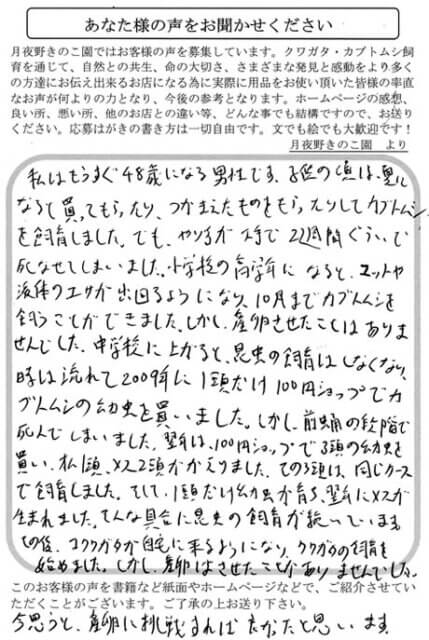 あなた様の声をお聞かせください
月夜野きのこ園ではお客様の声を募集しています。クワガタ・カブトムシ飼
育を通じて、自然との共生、命の大切さ、さまざまな発見と感動をより多く
の方達にお伝え出来るお店になる為に実際に用品をお使い頂いた皆様の率直
なお声が何よりの力となり、今後の参考となります。ホームページの感想、
良い所、悪い所、他のお店との違い等、どんな事でも結構ですので、お送り
ください。応募はがきの書き方は一切自由です。文でも絵でも大歓迎です！
月夜野きのこ園　より
私はもうすぐ48歳になる男性です。子供の頃は、夏に
なると買ってもらったり、つかまえたものをもらったりしてカブトムシ
を飼育しました。でも、やり方が下手で2週間ぐらいで
死なせてしまいました。小学校の高学年になると、マットや
液体のエサが出回るようになり、10月までカブトムシを
飼うことができました。しかし、産卵させたことはありま
せんでした。中学校に上がると、昆虫の飼育はしなくなり、
時は流れて2009年に1頭だけ100円ショップでカ
ブトムシの幼虫を買いました。しかし、前蛹の段階で
死んでしまいました。翌年は、100円ショップで3頭の幼虫を
買い、オス1頭、メス2頭がかえりました。その3頭は、同じケース
で飼育しました。そして、1頭だけ幼虫が育ち、翌年にメスが
生まれました。そんな具合に昆虫の飼育が続いています。
その後、コクワガタが自宅に来るようになり、クワガタの飼育を
始めました。しかし、産卵はさせたことがありませんでした。
このお客様の声を書籍など紙面やホームページなどで、ご紹介させてい
ただくことがございます。ご了承の上お送り下さい。
今思うと、産卵に挑戦すれば良かったと思います。